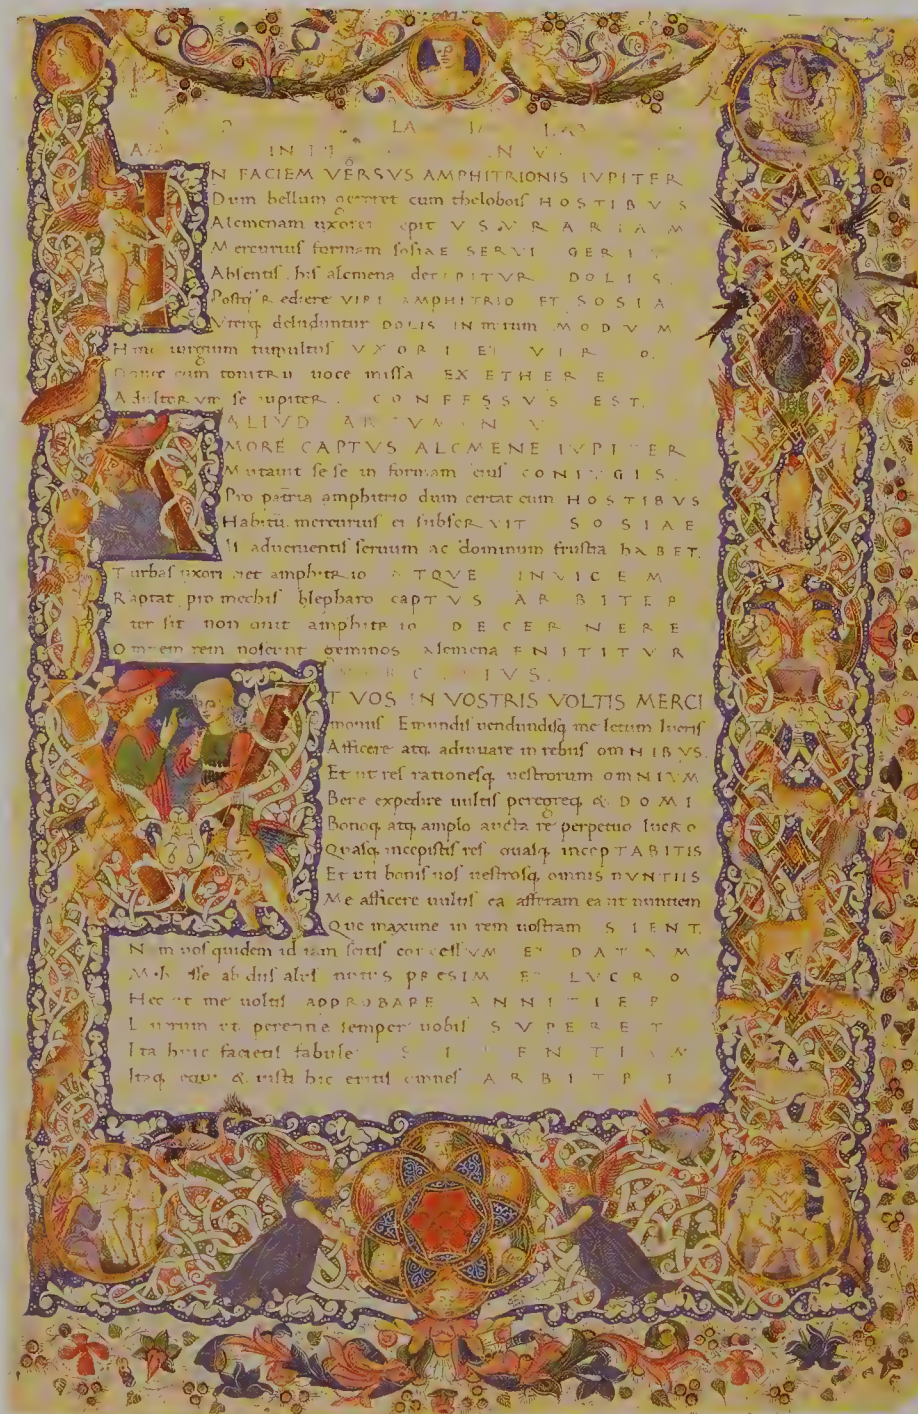 IN FACIEM VERSVS AMPHITRIONIS IVPITER
Dum bellum gereret cum thelobois HOSTIBVS
Alcmenam uxorem cepit VSVRARIAM
Mercurius formam sosiae SERVI GERIT
Absentis his alcmena decIPITVR DOLIS
Postq̃ Rediere VIRI AMPHITRIO ET SOSIA
Vterq deluduntur DOLIS IN mirum MODVM
Hinc iurgium tumultus VXORI ET VIRO
Donec cum tonitru uoce missa EX ETHERE
Adulterum se iupiter CONFESSVS EST.
ALIVD ARGVMENTV
AMORE CAPTVS ALCMENE IVPITER
Mutauit sese in formam eius CONIVGIS
Pro patria amphitrio dum certat cum HOSTIBVS
Habitū mercurius ei subseRVIT SOSIAE
Is aduenientis seruum ac dominum frustra hABET.
Turbas uxori ciet amphitrio ATQVE INVICEM
Raptat pro mechis blepharo capTVS ARBITER
ter sit non quit amphitrio DECERNERE
Omnem rem noscunt geminos alcmena ENITITVR
MERCVRIVS.
VT VOS IN VOSTRIS VOLTIS MERCI
moniis Emundis uendundisq me letum lucris
Afficere atq adiuuare in rebus omNIBVS.
Et ut res rationesq uestrorum omNIVM
Bere expedire uultis peregreq & DOMI
Bonoq atq amplo aucta re perpetuo lucro
Quasq incepistis res quasq incepTABITIS
Et uti bonis uos uestrosq omnis NVNTIIS
Me afficere uultis ea afferam ea ut nuntiem
Que maxume in rem uostram SIENT.
Nam uos quidem id iam scitis concessVM ET DATVM
Mihi esse ab diis aliis nutiis PRESIM ET LVCRO
Hec ut me uoltis APPROBARE ANNITIER
Lucrum ut perenne semper uobis SVPERET
Ita huic facietis fabule SILENTIVM
Itaq equi & iusti hic eritis omnes ARBITRI